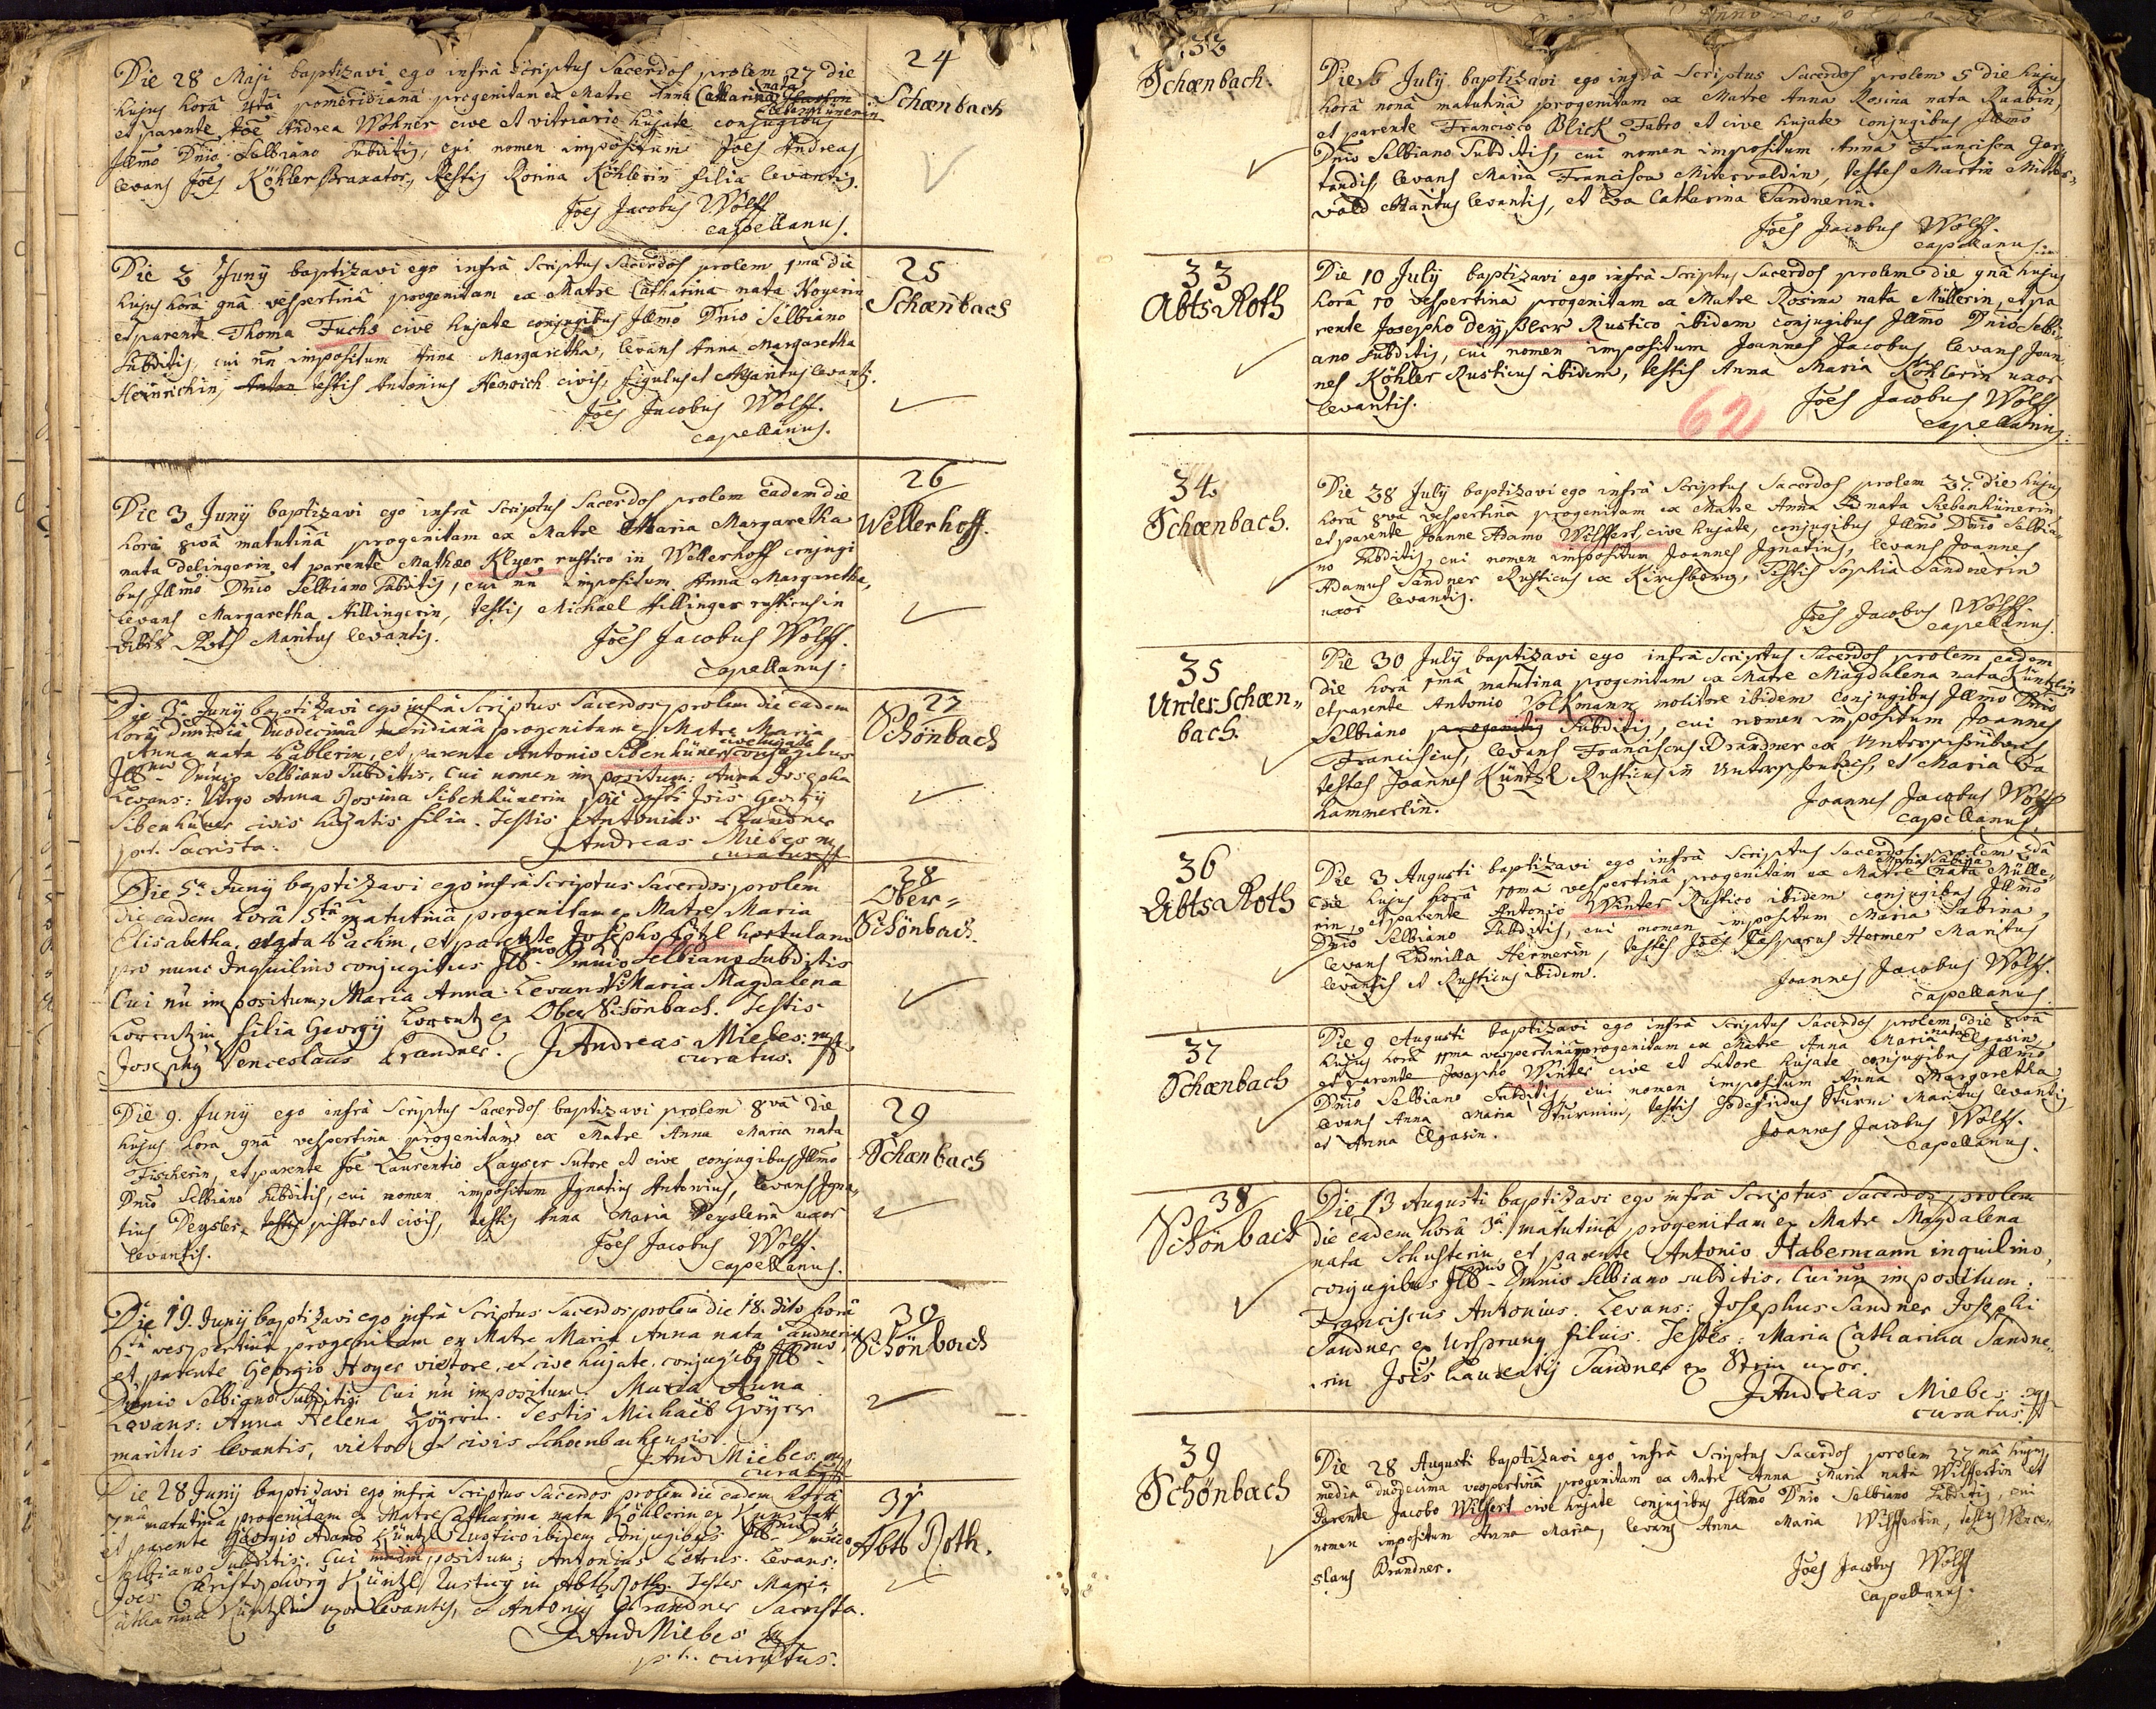 24
Schœnbach
Die 28 Maji baptizavi ego infrà scriptus Sacerdos prolem 27 die
hujus horâ 4tâ pomeridianâ progenitam ex Matre Anna Catharina nata
et parente Joe Andrea Wohner cive et vitriario hujate conjugibus
Illmo Dnio Selbiano Subditis, cui nomen impositum Joes Andreas
levans Joes Köhler Braxator, Testis Rosina Köhlerin filia levantis.
Joes Jacobus Wolff
capellanus.
25
Schœnbach
Die 2 Junÿ baptizavi ego infrà Scriptus Sacerdos prolem 1ma die
hujus horâ 9nâ vespertinâ progenitam ex Matre Catharina nata Hoyerin
et parente Thoma Fuchs cive hujate conjugibus Illmo Dnio Selbiano
Subditis, cui nn impositum Anna Margaretha, levans Anna Margaretha
Heinrichin, Anton testis Antonius Henrich civis, figulus et Maritus levantis.
Joes Jacobus Wolff.
capellanus.
26
Wellerhoff.
Die 3 Junÿ baptizavi ego infrà Scriptus Sacerdos prolem eadem die
horâ 8vâ matutinâ progenitam ex Matre Maria Margaretha
nata delingerin et parente Mathæo Klyer rustico in Wellerhoff conjugi
bus Illmo Dnio Selbiano Subditis, cui nn impositum Anna Margaretha,
levans Margaretha Hillingerin, testis Michael Hillinger rusticus in
Abts Roth Maritus levantis.
Joes Jacobus Wolff.
capellanus.
27
Schönbach
Die 3a Junÿ baptizavi ego infrà Scriptus Sacerdos prolem die eadem
horâ Duodecimâ meridianâ progenitam ex Matre Maria
Anna nata Bäblerin, et parente Antonio Sibenhüner cive hujate conjugibus
Illmo Dnnio Selbiano Subditis. Cui nomen impositum: Anna Josepha
Levans: Virgo Anna Rosina Sibenhünerin, Jois Georgÿ
Sibenhüner civis hujatis filia. Testis Antonius Brandner
p.t. Sacrista.
J Andreas Miebes
curatus
28
Ober=
Schönbach.
Die 5a Junÿ baptizavi ego infrà Scriptus Sacerdos, prolem
die eadem horâ 5tâ matutinâ progenitam ex Matre Maria
Elisabetha, nata Bachin, et parente Josepho Götzl hortulano
pro nunc Inquilino conjugibus Illmo Dnnio Selbiano Subditis
Cui nn impositum, Maria Anna. Levans: Maria Magdalena
Lorentzin filia Georgÿ Lorentz ex Ober Schönbach. Testis
Josephus Venceslaus Brandner.
J Andreas Miebes.
curatus.
29
Schœnbach
Die 9. Junÿ ego infrà Scriptus Sacerdos baptizavi prolem 8vâ die
hujus horâ 9nâ vespertina progenitam ex Matre Anna Maria nata
Fischerin, et parente Joe Laurentio Kayser Sutore et cive conjugibus Illmo
Dnio Selbiano Subditis, cui nomen impositum Ignatius Antonius, levans Igna=
tius Deysler, pistor et civis, testis Anna Maria Deyslerin uxor
levantis.
Joes Jacobus Wolff.
capellanus.
30
Schönbach
Die 19. Junÿ baptizavi ego infrà Scriptus Sacerdos, prolem die 18. dito horâ
6tâ vespertinâ progenitam ex Matre Maria Anna nata Sandnerin
et parente Georgio Hoyer victore, et cive hujate conjugibus Illmo
Dnnio Selbiano Subditis. Cui nn impositum. Maria Anna
Levans: Anna Helena Hoyerin. Testis Michael Hoyer
maritus levantis, victor et civis Schoenbachensis.
J And Miebes
curatus
31
Abts Roth.
Die 28 Junÿ baptizavi ego infrà Scriptus Sacerdos prolem die eadem horâ
7mâ matutinâ progenitam ex Matre Catharina nata Köhlerin ex Kunstatt
et parente Georgio Adamo Küntzl Rustico ibidem conjugibus Illmo Dnnio
Selbiano Subditis. Cui nomen impositum; Antonius Petrus. Levans:
Joes Christophorus Küntzl Rusticus in Abts Roth. Testes Maria
Catharina Küntzlin uxor levantis, et Antonius Brandner Sacrista.
J And Miebes
p.t. curatus.
32
Schœnbach.
Die 6 Julÿ baptizavi ego infrà Scriptus Sacerdos prolem 5 die hujus
horâ nonâ matutinâ progenitam ex Matre Anna Rosina nata Raabin,
et parente Francisco Blick Fabro et cive hujate conjugibus Illmo
Dnio Selbiano Subditis, cui nomen impositum Anna Francisca Ger=
trudis, levans Maria Francisca Mitervaldin, testes Martin Mitter=
vald Maritus levantis, et Eva Catharina Sandnerin.
Joes Jacobus Wolff.
capellanus.
33
Abts Roth
Die 10 Julÿ baptizavi ego infrà Scriptus Sacerdos prolem die 9nâ hujus
horâ 10 vespertina progenitam ex Matre Rosina nata Müllerin, et pa
rente Josepho Deysler Rustico ibidem conjugibus Illmo Dnio Selbi=
ano Subditis, cui nomen impositum Joannes Jacobus levans Joan=
nes Köhler Rusticus ibidem, testis Anna Maria Köhlerin uxor
levantis.
62
Joes Jacobus Wolff
capellanus.
34
Schœnbach.
Die 28 Julÿ baptizavi ego infrà Scriptus Sacerdos prolem 27. die hujus
horâ 8vâ vespertina progenitam ex Matre Anna nata Siebenhünerin
et parente Joanne Adamo Wilffert, cive hujate, conjugibus Illmo Dnio Selbia=
no Subditis, cui nomen impositum Joannes Ignatius, levans Joannes
Adamus Sandner Rusticus ex Kirchberg, Testis Sophia Sandnerin
uxor levantis.
Joes Jacobus Wolff.
capellanus.
35
Unter Schœn=
bach.
Die 30 Julÿ baptizavi ego infrà Scriptus Sacerdos prolem eadem
die horâ 1mâ matutina progenitam ex Matre Magdalena nata Küntzlin
et parente Antonio Volkmann molitore ibidem conjugibus Illmo Dnio
Selbiano progenitis Subditis, cui nomen impositum Joannes
Franciscus, levans Franciscus Brandner ex Unterschönbach
testes Joannes Küntzl Rusticus in Unterschönbach, et Maria Eva
Hammerlin.
Joannes Jacobus Wolff
capellanus.
36
Abts Roth
Die 3 Augusti baptizavi ego infrà Scriptus Sacerdos prolem 2dâ
die hujus horâ 10ma vespertinâ progenitam ex Matre Maria Sabina nata Mülle=
rin, et parente Antonio Winter Rustico ibidem conjugibus Illmo
Dnio Selbiano Subditis, cui nomen impositum Maria Sabina,
levans Ludmilla Hermerin, testis Joes Casparus Hermer Maritus
levantis et Rusticus ibidem.
Joannes Jacobus Wolff.
capellanus.
37
Schœnbach
Die 9 Augusti baptizavi ego infrà Scriptus Sacerdos prolem die 8vâ
hujus horâ 11ma vespertinâ progenitam ex Matre Anna Maria nata Elgasin
et parente Josepho Winter cive et Sutore hujate conjugibus Illmo
Dnio Selbiano Subditis, cui nomen impositum Anna Margaretha
levans Anna Maria Sturmin, testis Godefridus Sturm Maritus levantis
et Anna Elgasin.
Joannes Jacobus Wolff.
capellanus.
38
Schönbach
Die 13 Augusti baptizavi ego infrà Scriptus Sacerdos, prolem
die eadem horâ 3â matutinâ progenitam ex Matre Magdalena
nata Schusterin, et parente Antonio Habermann inquilino,
conjugibus Illmo Dnnio Selbiano subditis. Cui nn impositum.
Franciscus Antonius. Levans: Josephus Sandner Josephi
Sandner ex Ursprung filius. Testes: Maria Catharina Sandne=
rin Jois Laurentÿ Sandner ex Stein uxor.
J Andreas Miebes
curatus
39
Schönbach
Die 28 Augusti baptizavi ego infrà Scriptus Sacerdos prolem 27mâ hujus
media duodecima vespertinâ progenitam ex Matre Anna Maria nata Wilffertin et
Parente Jacobo Wilfert cive hujate conjugibus Illmo Dnio Selbiano Subditis, cui
nomen impositum Anna Maria, levans Anna Maria Wilffertin, testis Wence=
slaus Brandner.
Joes Jacobus Wolff
capellanus.